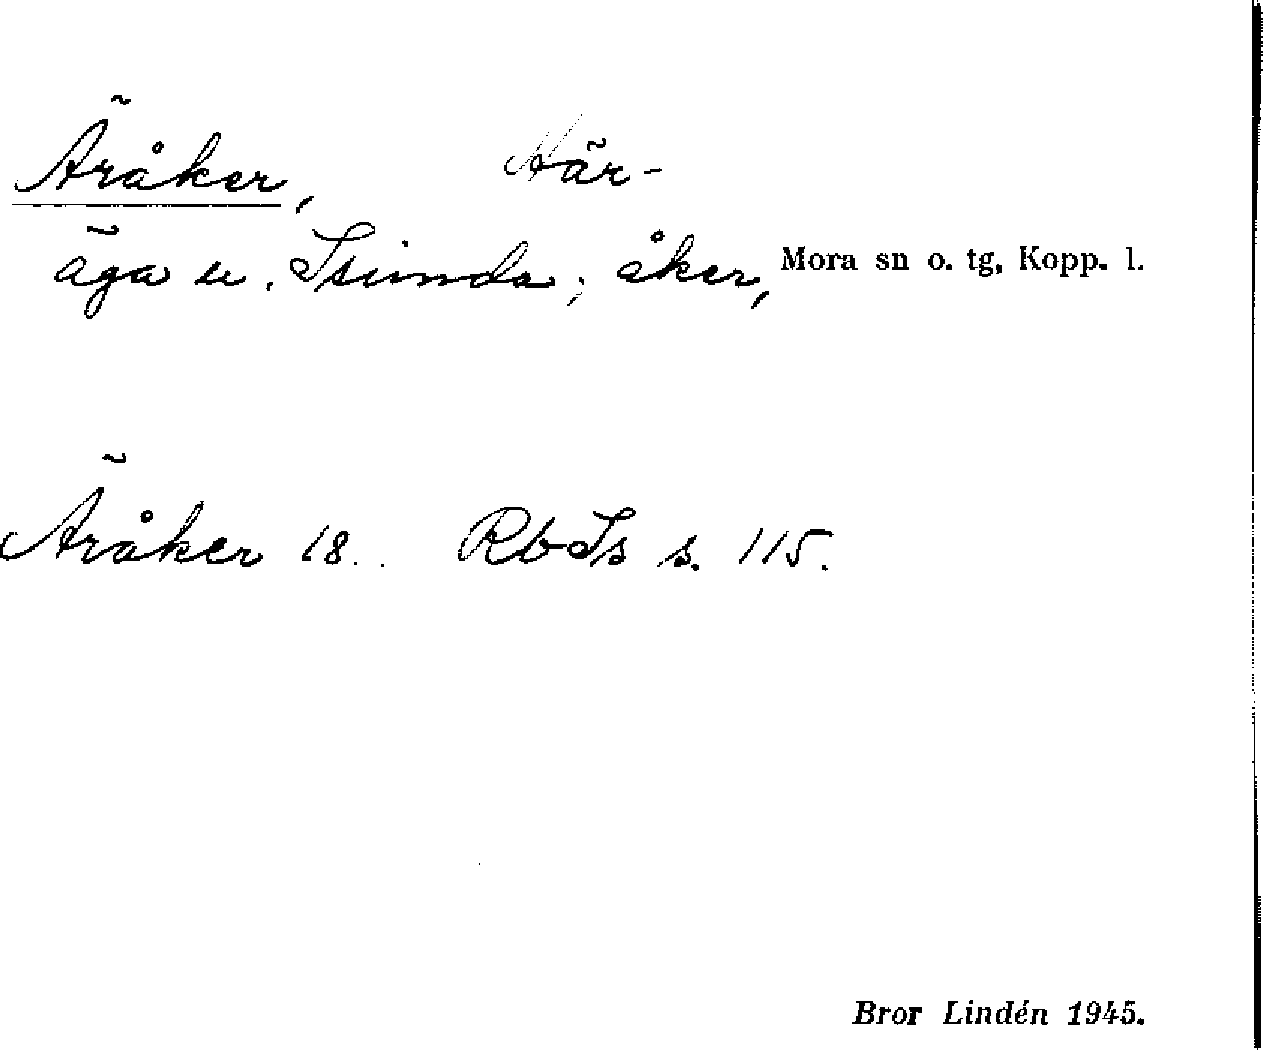 Äråker, Här-
äga u. Isunda; åker, Mora sn o. tg, Kopp. l.
Äråker 18. . RbIs s. 115.
Bror Lindén 1945.